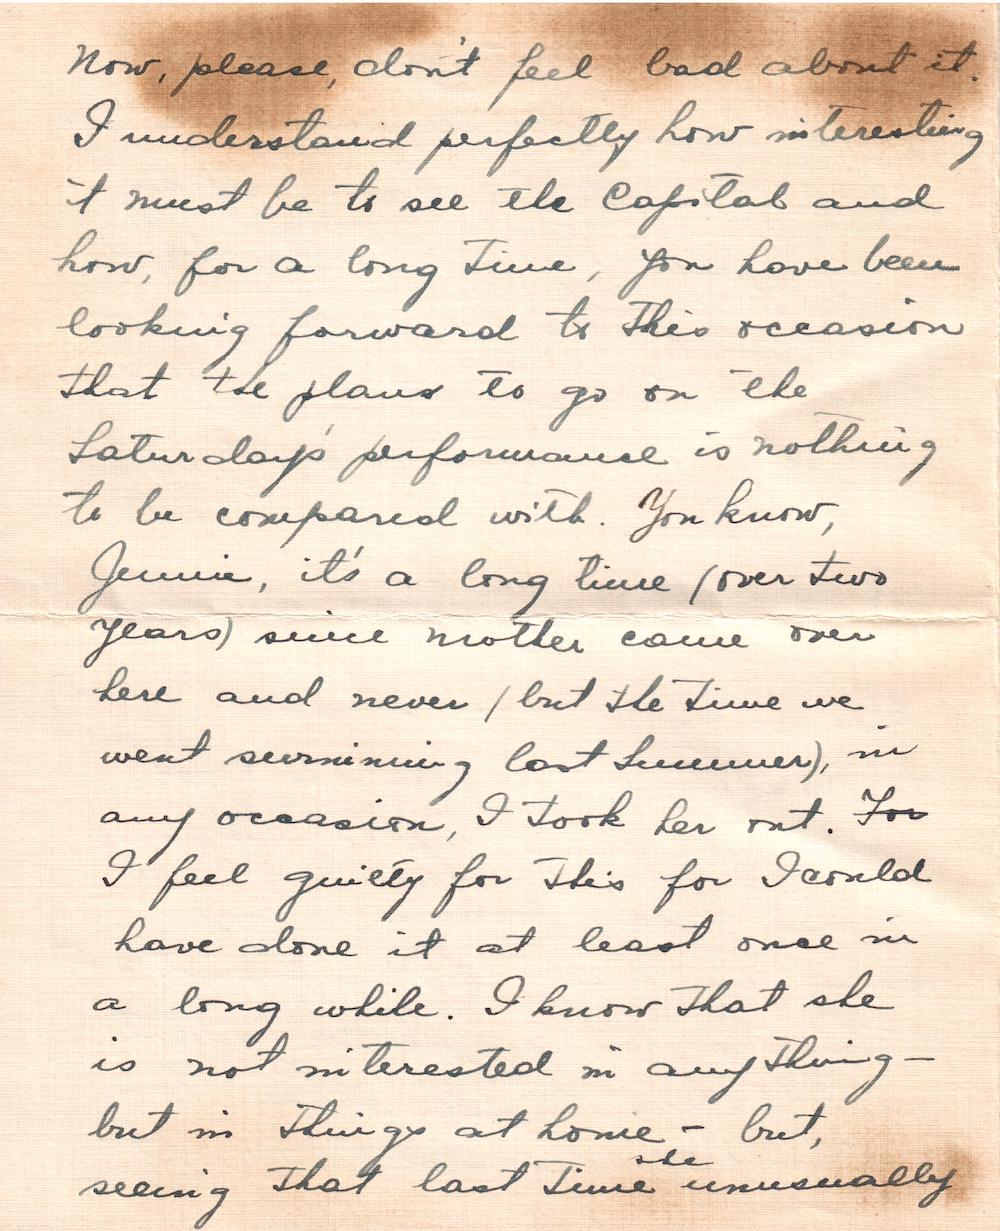 Now, please, don't feel bad about it.
I understand perfectly how interesting
it must be to see the Capital and
how, for a long time, you have been
looking forward to this occasion
that the plans to go on the
Saturday's performance is nothing
to be compared with. You know,
Jennie, it's a long time (over two
years) since mother came over
here and never (but the time we
went swimming last Summer), in
any occasion, I took her out. For
I feel guilty for this for I could
have done it at least once in
a long while. I know that she
is not interested in anything -
but in things at home - but,
seeing that last time she unusually